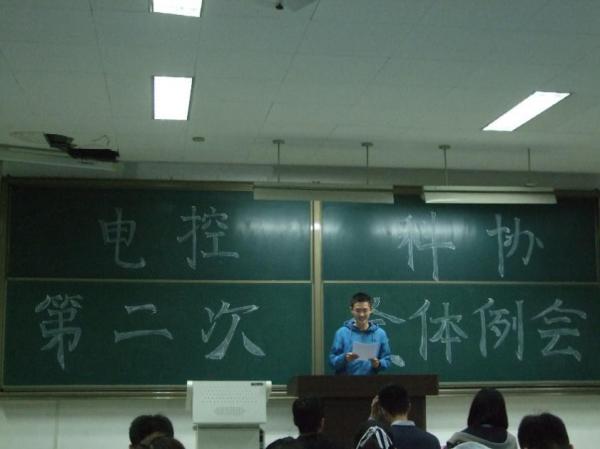 电控 科协
第二次 全体例会